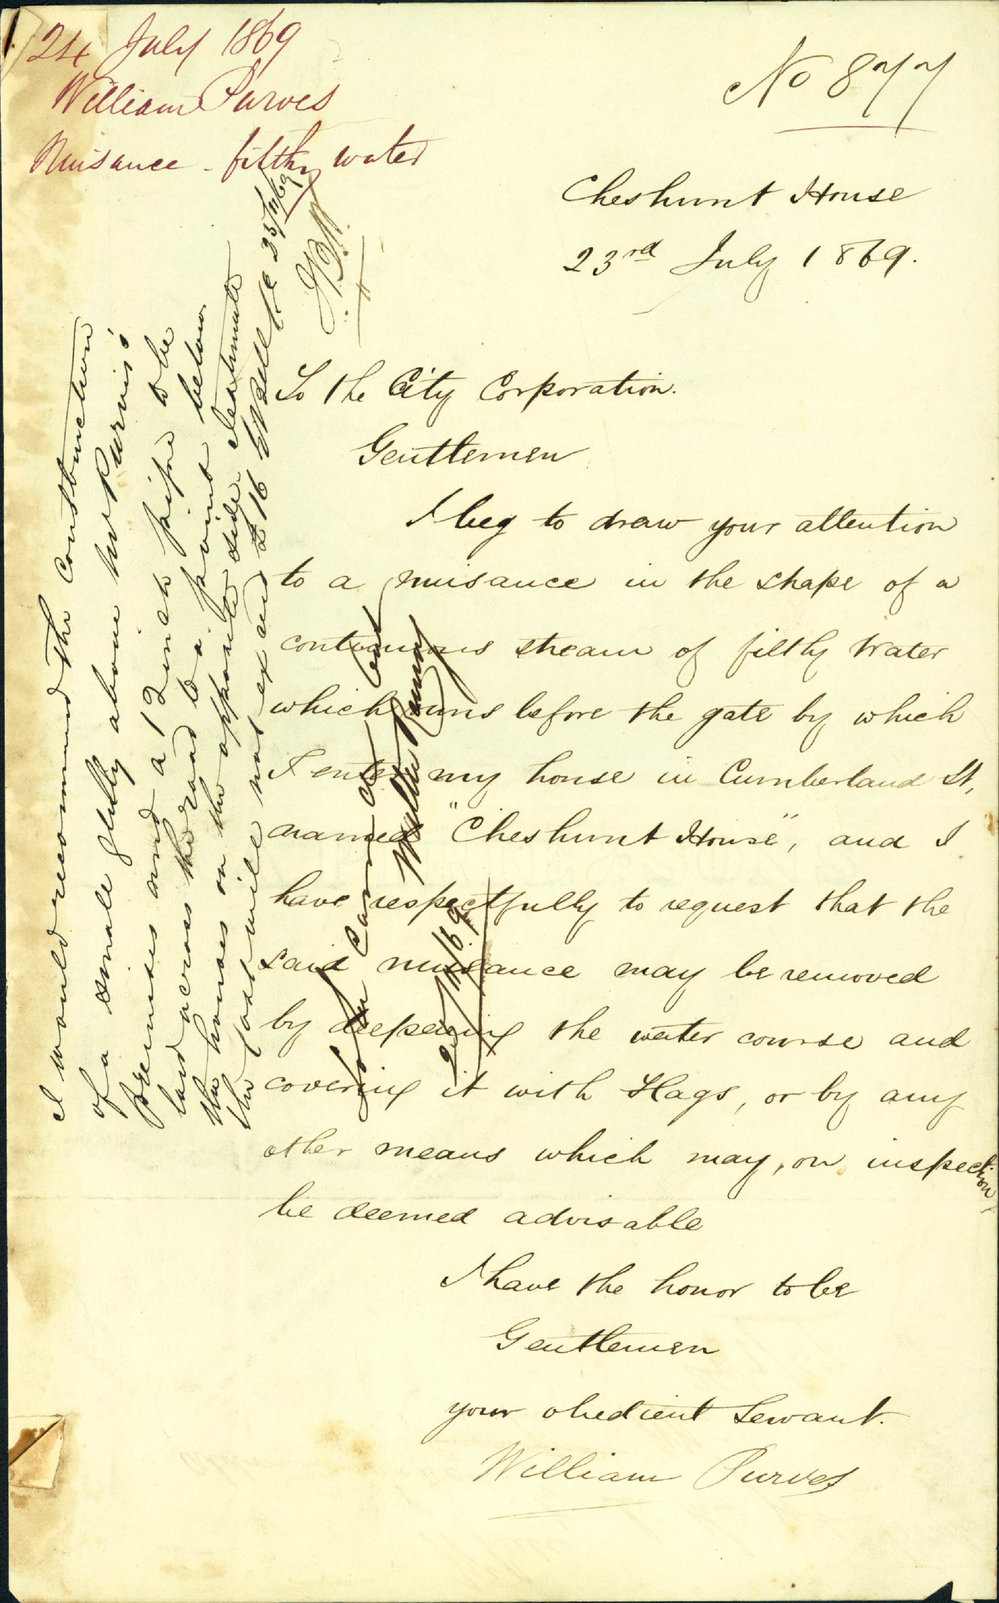 24 July 1869
William Purves
Nuisance - filthy water
No 877
Cheshunt House
23rd July 1869.
To the City Corporation.
Gentlemen
I beg to draw your attention
to a nuisance in the shape of a
continuous stream of filthy Water
which runs before the gate by which
I enter my house in Cumberland St,
named "Cheshunt House", and I
have respectfully to request that the
said nuisance may be removed
by deepening the water course and
covering it with Flags, or by any
other means which may, on inspection
be deemed advisable
I have the honor to be
Gentlemen
your obedient Servant.
William Purves
I would recommend the construction
of a small gully above Mr Purvis's
premises and a 12 inch pipe to be
laid across the road to a point below
the houses on the opposite side. Estimate
the cost will not exceed £16
25/7/69